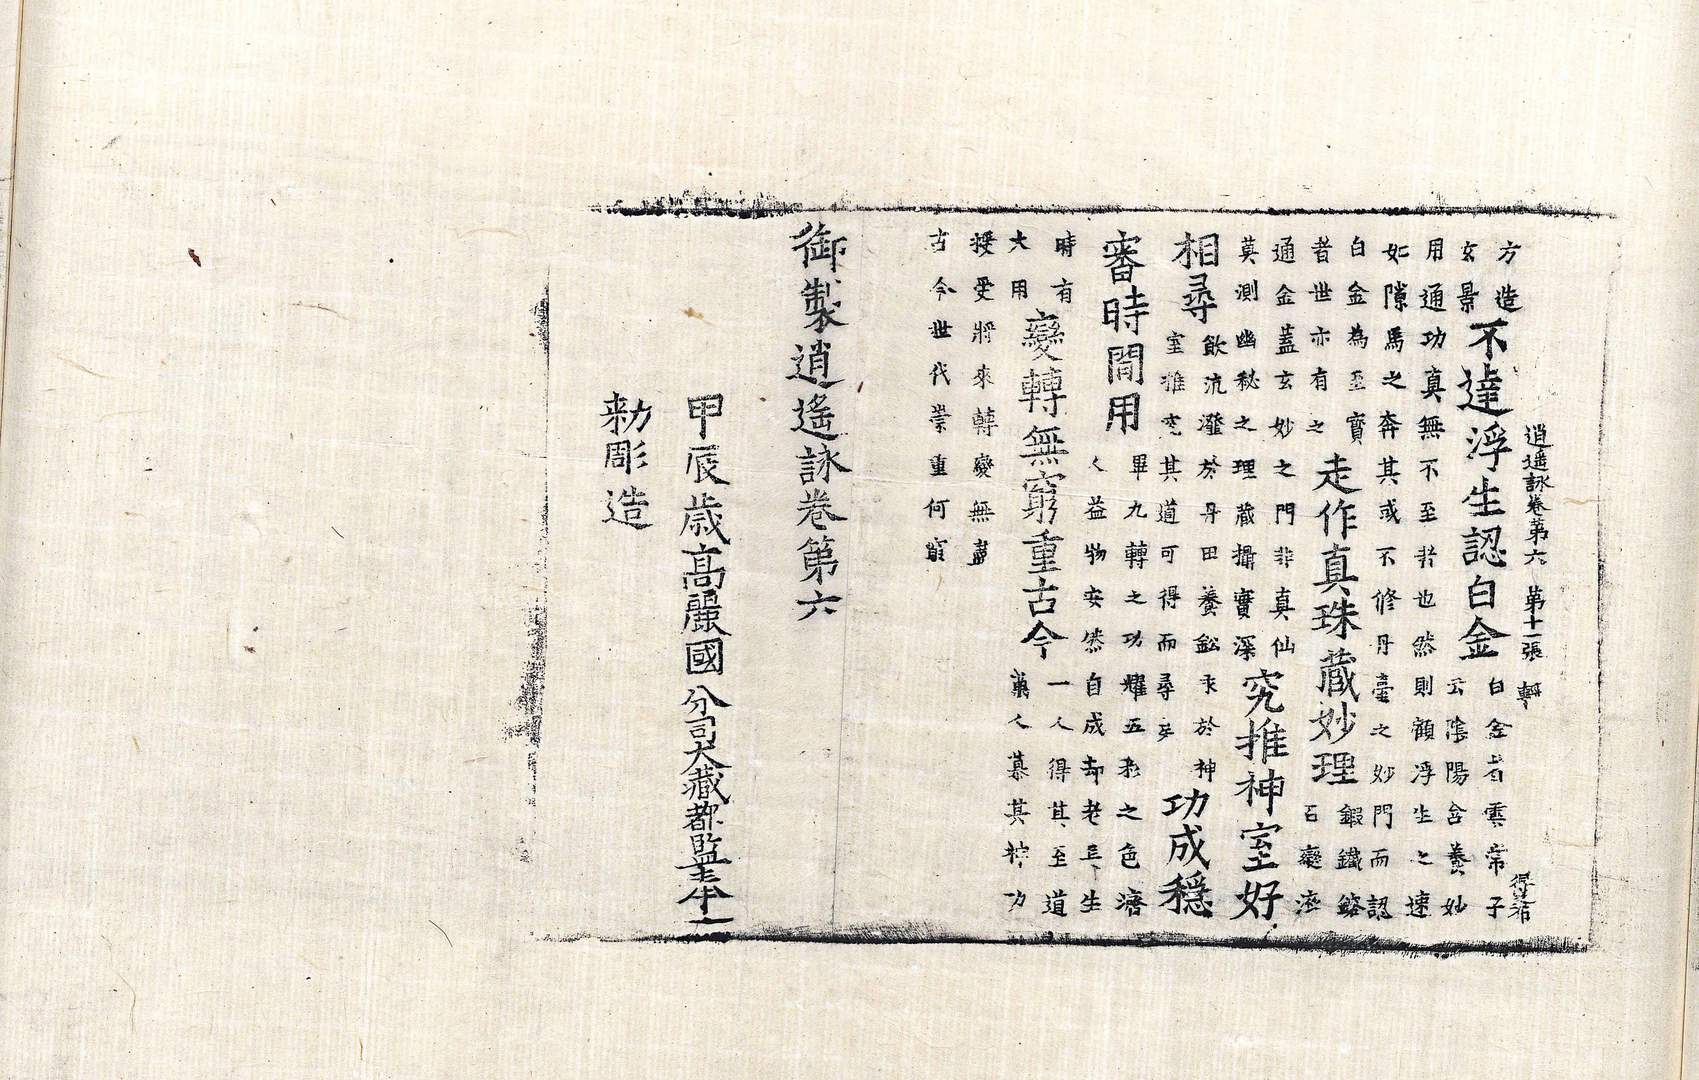 逍遥詠卷第六　第十一張　轉
方造
玄景
不達浮生認白金
白金者雲常子
云陰陽含養妙
用通功真無不至者也然則顧浮生之速
如隙馬之奔其或不修丹臺之妙門而認
白金為至寶
者世亦有之
走作真珠蔵妙理
鍜鐵鎔
石藥濟
通金蓋玄妙之門非真仙
莫測幽秘之理蔵攝實深
究推神室好
相尋
飲沆瀣於丹田養鈆汞於神
室推究其道可得而尋乎
功成穩
審時閒用
畢九轉之功耀五彩之色濟
人益物安然自成却老長生
時有
大用
變轉無窮重古今
一人得其至道
萬人慕其神功
授受將來轉變無盡
古今世代崇重何窮
御製逍遥詠卷第六
甲辰歳髙麗國分司大藏都監奉
勑彫造